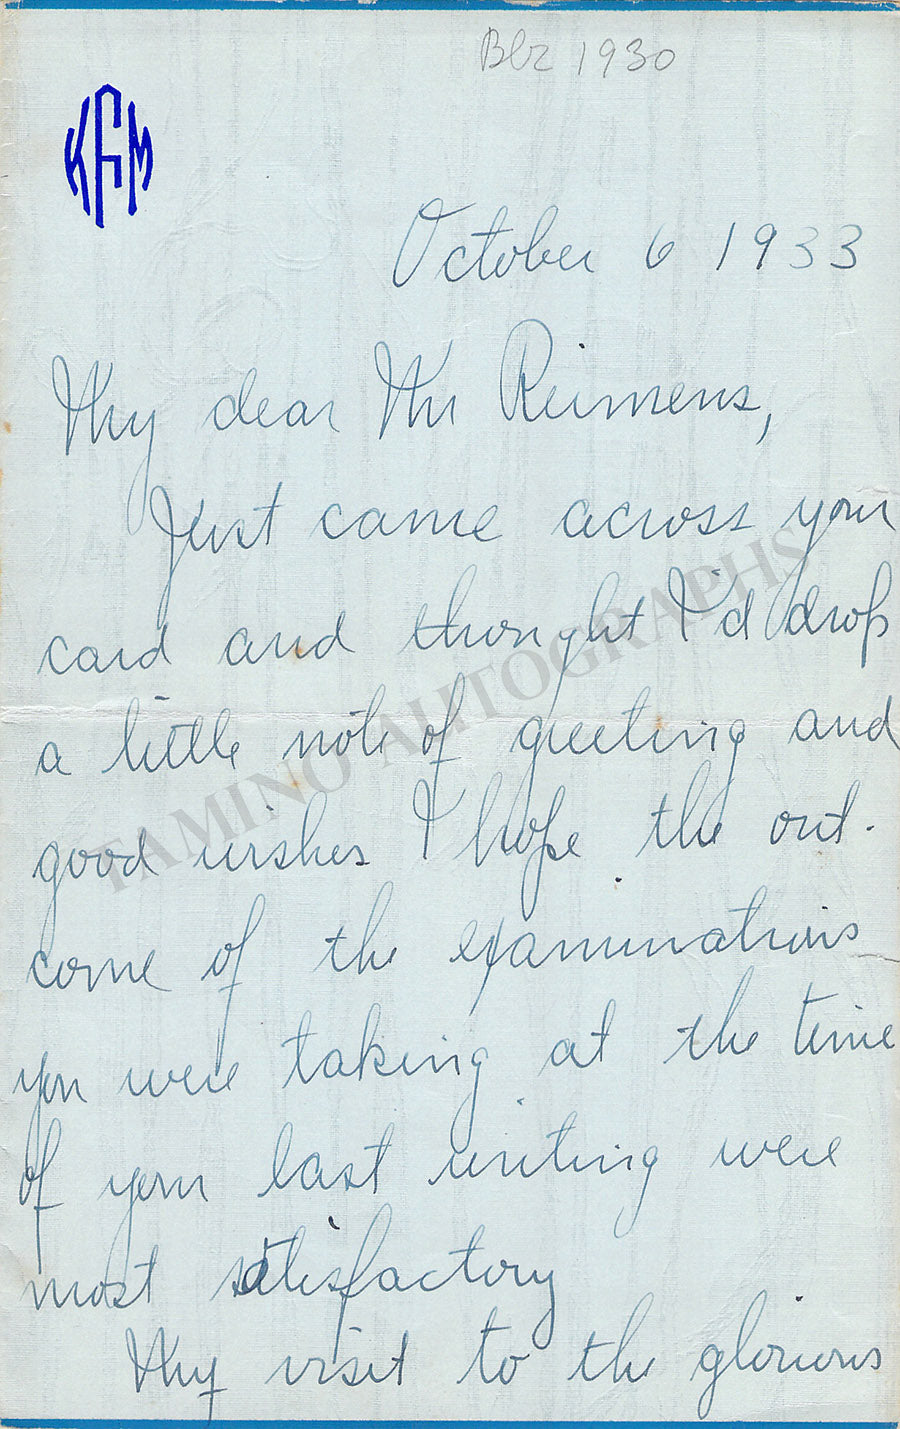 Blz 1930
KFM
October 6 1933
My dear Mr Reimens,
Just came across your
card and thought I'd drop
a little note of greeting and
good wishes I hope the out-
come of the examinations
you were taking at the time
of your last writing were
most satisfactory
My visit to the glorious
TAMINO AUTOGRAPHS